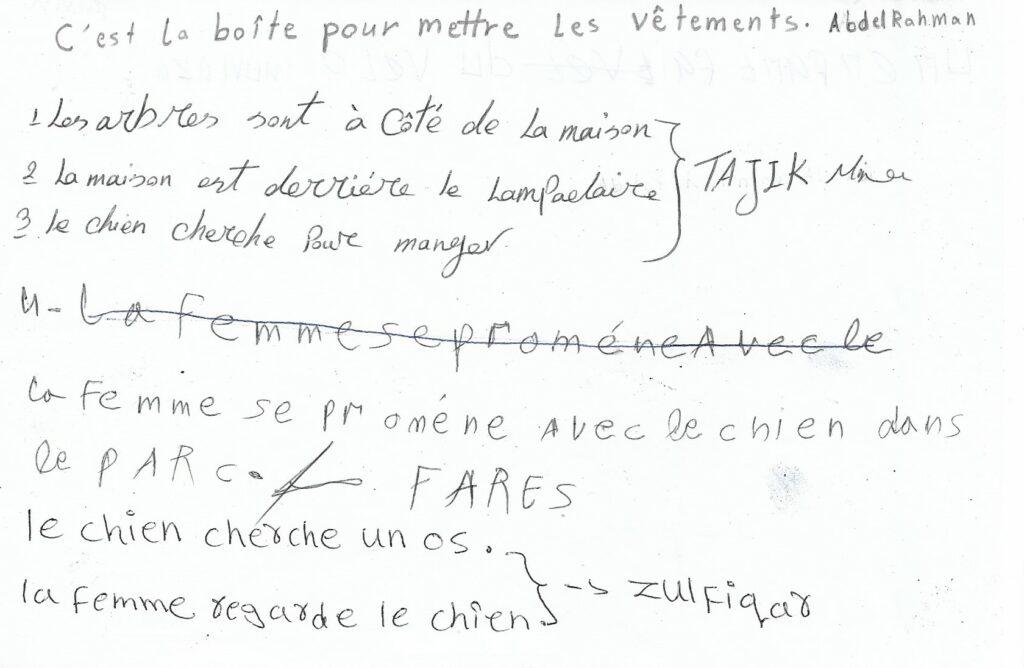 C'est la boîte pour mettre les vêtements. AbdelRahman
1 Les arbres sont à Côté de la maison
2 la maison est derriére le lampadaire TAJIK
3 le chien cherche Pour manger
4- La femme se proméne Avec le
la Femme se proméne Avec le chien dans
le PARc. FARES
le chien cherche un os.
la femme regarde le chien. -> zulFiqar